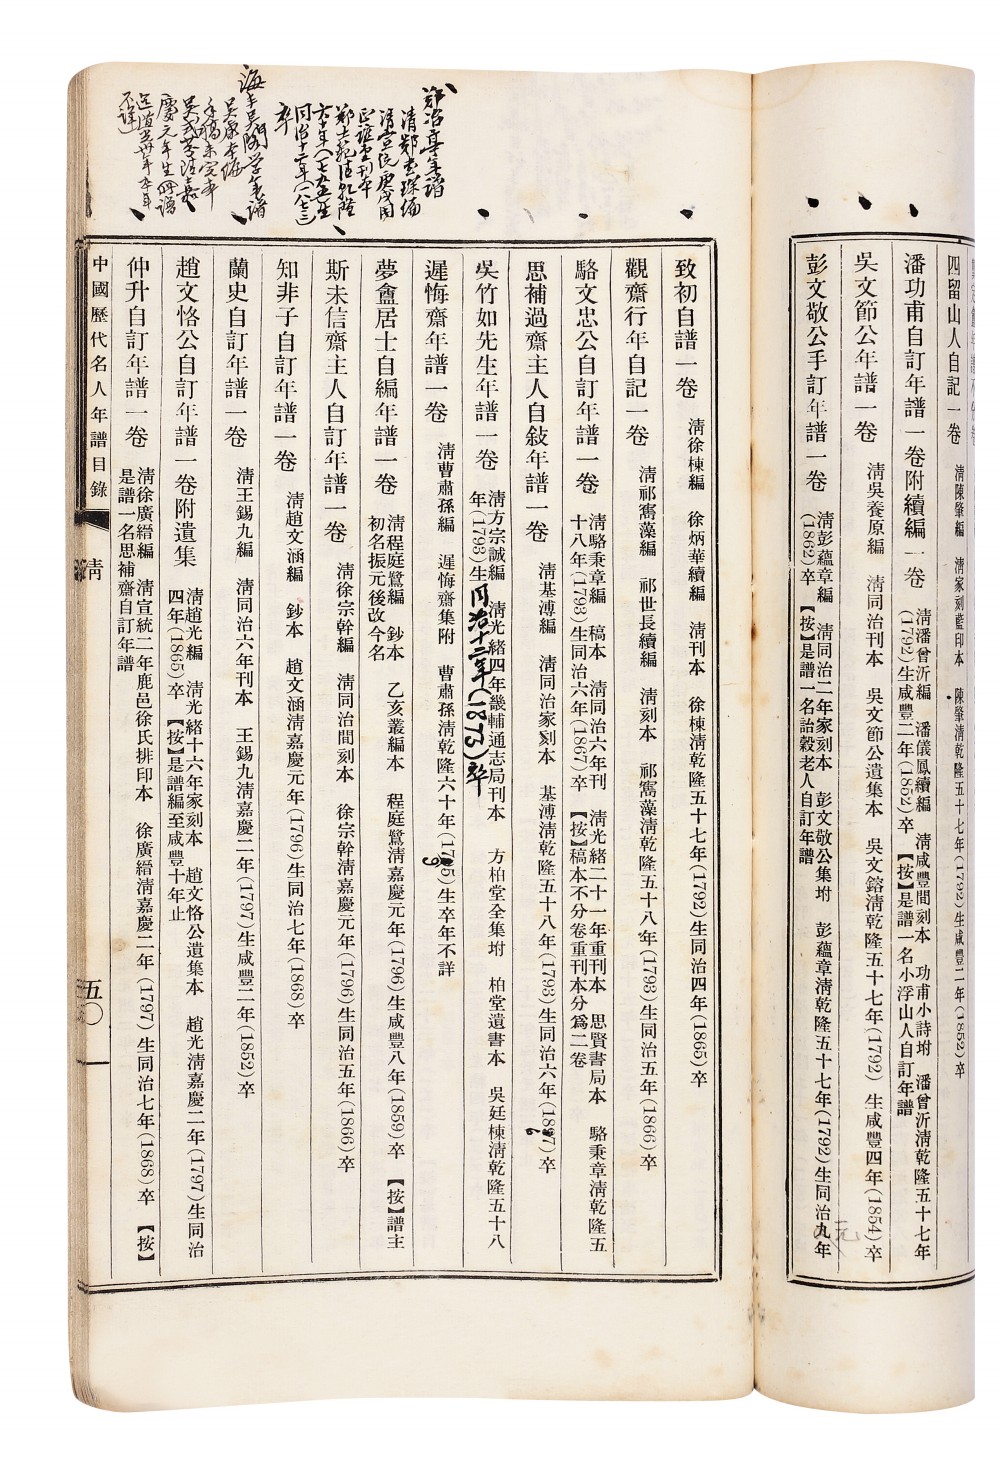 四留山人自記一卷　清陳肇編　清家刻藍印本　陳肇清乾隆五十七年(1792)生咸豐二年(1852)卒
潘功甫自訂年譜一卷附續編一卷　清潘曾沂編　潘儀鳳續編　清咸豐間刻本　功甫小詩坿　潘曾沂清乾隆五十七年
(1792)生咸豐二年(1852)卒　【按】是譜一名小浮山人自訂年譜
吳文節公年譜一卷　清吳養原編　清同治刊本　吳文節公遺集本　吳文鎔清乾隆五十七年(1792)生咸豐四年(1854)卒
彭文敬公手訂年譜一卷　清彭蘊章編　清同治二年家刻本　彭文敬公集坿　彭蘊章清乾隆五十七年(1792)生同治九年
(1862)卒　【按】是譜一名詒穀老人自訂年譜
元
鄭冶亭年譜
清鄭
清宣統庚戌間
刊本
鄭士範清乾隆
六十年(一七九五)生
同治十二年(一八七三)
卒
海丰吳閣学年譜
手稿未完本
吳式芬清嘉
慶元年生
不詳
致初自譜一卷　清徐棟編　徐炳華續編　清刊本　徐棟清乾隆五十七年(1792)生同治四年(1865)卒
觀齋行年自記一卷　清祁寯藻編　祁世長續編　清刻本　祁寯藻清乾隆五十八年(1793)生同治五年(1866)卒
駱文忠公自訂年譜一卷　清駱秉章編　稿本　清同治六年刊　清光緒二十一年重刊本　思賢書局本　駱秉章清乾隆五
十八年(1793)生同治六年(1867)卒　【按】稿本不分卷重刊本分爲二卷
思補過齋主人自敍年譜一卷　清基溥編　清同治家刻本　基溥清乾隆五十八年(1793)生同治六年(1897)卒
吳竹如先生年譜一卷　清方宗誠編　清光緒四年畿輔通志局刊本　方柏堂全集坿　柏堂遺書本　吳廷棟清乾隆五十八
年(1793)生同治十二年(1873)卒
遲悔齋年譜一卷　清曹肅孫編　遲悔齋集附　曹肅孫清乾隆六十年(1795)生卒年不詳
夢盦居士自編年譜一卷　清程庭鷺編　鈔本　乙亥叢編本　程庭鷺清嘉慶元年(1796)生咸豐八年(1859)卒　【按】譜主
初名振元後改今名
斯未信齋主人自訂年譜一卷　清徐宗幹編　清同治間刻本　徐宗幹清嘉慶元年(1796)生同治五年(1866)卒
知非子自訂年譜一卷　清趙文涵編　鈔本　趙文涵清嘉慶元年(1796)生同治七年(1868)卒
蘭史自訂年譜一卷　清王錫九編　清同治六年刊本　王錫九清嘉慶二年(1797)生咸豐二年(1852)卒
趙文恪公自訂年譜一卷附遺集　清趙光編　清光緒十六年家刻本　趙文恪公遺集本　趙光清嘉慶二年(1797)生同治
四年(1865)卒　【按】是譜編至咸豐十年止
仲升自訂年譜一卷　清徐廣縉編　清宣統二年鹿邑徐氏排印本　徐廣縉清嘉慶二年(1797)生同治七年(1868)卒　【按】
是譜一名思補齋自訂年譜
中國歷代名人年譜目錄
清
五〇